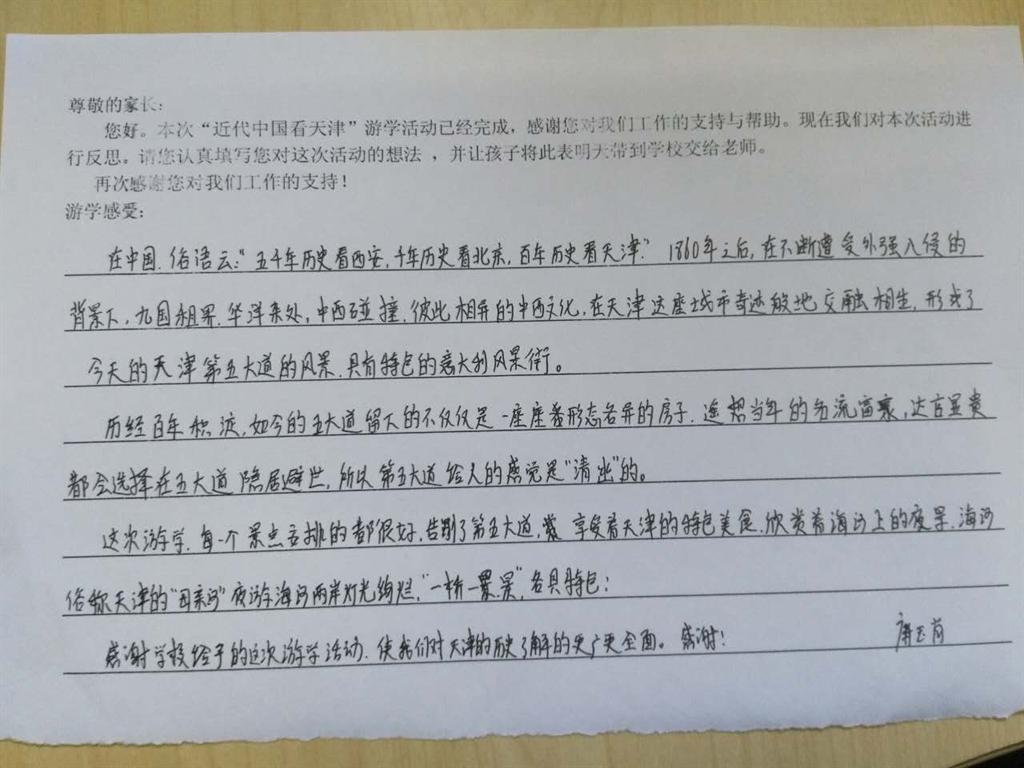 尊敬的家长：
您好。本次“近代中国看天津”游学活动已经完成，感谢您对我们工作的支持与帮助。现在我们对本次活动进
行反思。请您认真填写您对这次活动的想法 ，并让孩子将此表明天带到学校交给老师。
再次感谢您对我们工作的支持！
游学感受：
在中国.俗语云：“五千年历史看西安，千年历史看北京，百年历史看天津” 1860年之后，在不断遭受外强入侵的
背景下，九国租界.华洋杂处，中西碰撞.彼此相异的中西文化，在天津这座城市奇迹般地交融相生，形成了
今天的天津第五大道的风景.具有特色的意大利风景街。
历经百年积淀，如今的五大道留下的不仅仅是一座座形态各异的房子.遥想当年的名流富豪，达官显贵
都会选择在五大道隐居避世，所以第五大道给人的感觉是“清幽”的。
这次游学.每一个景点安排的都很好.告别了第五大道，享受着天津的特色美食.欣赏着海河上的夜景.海河
俗称天津的“母亲河”夜游海河两岸灯光绚烂，“一桥一景”各具特色；
感谢学校给予的这次游学活动.使我们对天津的历史了解的更广更全面。感谢！